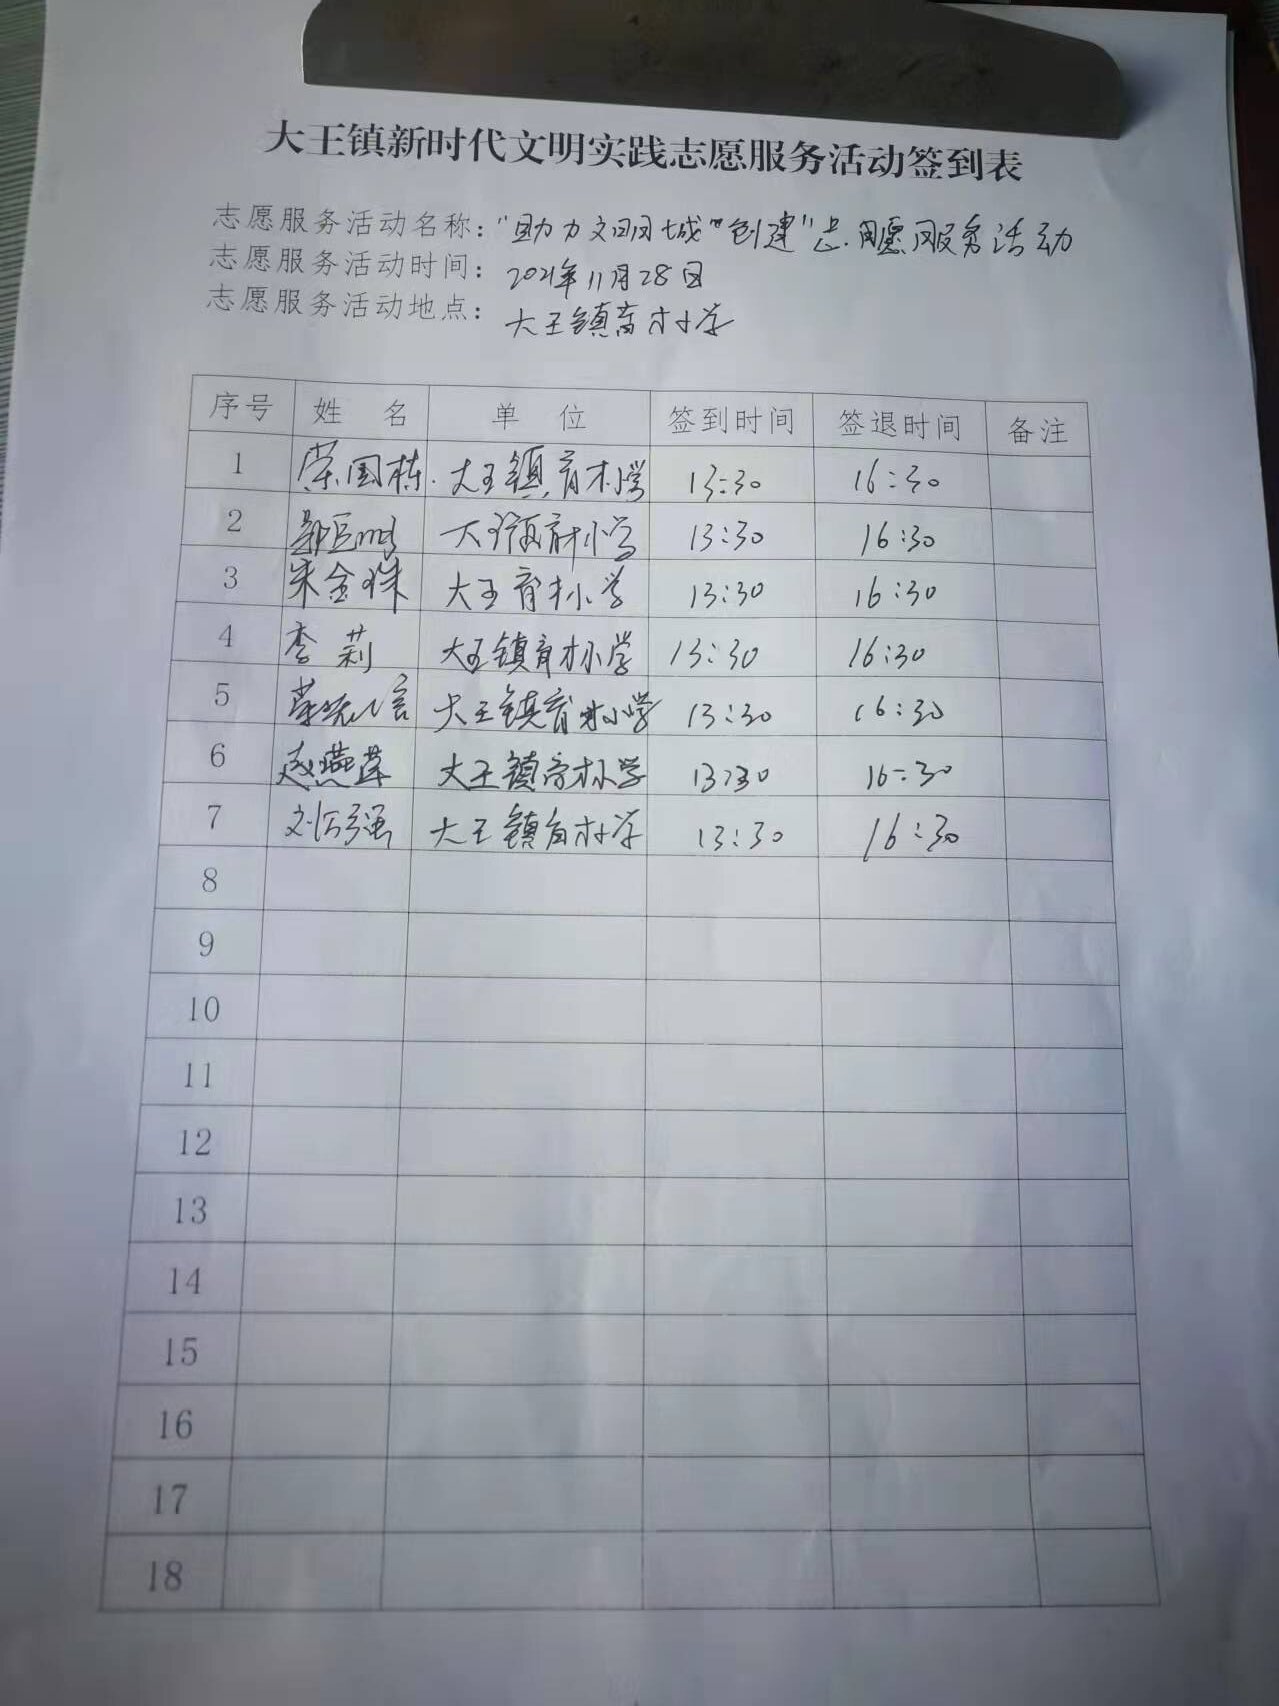 大王镇新时代文明实践志愿服务活动签到表
志愿服务活动名称："助力文明城"创建"志愿服务活动
志愿服务活动时间：2021年11月28日
志愿服务活动地点：大王镇育才小学
序号 姓名 单位 签到时间 签退时间 备注
1 荣国栋 大王镇育才小学 13:30 16:30
2 大王镇育才小学 13:30 16:30
3 朱金珠 大王育才小学 13:30 16:30
4 李莉 大王镇育才小学 13:30 16:30
5 大王镇育才小学 13:30 16:30
6 赵燕萍 大王镇育才小学 13:30 16:30
7 强 大王镇育才小学 13:30 16:30
8
9
10
11
12
13
14
15
16
17
18